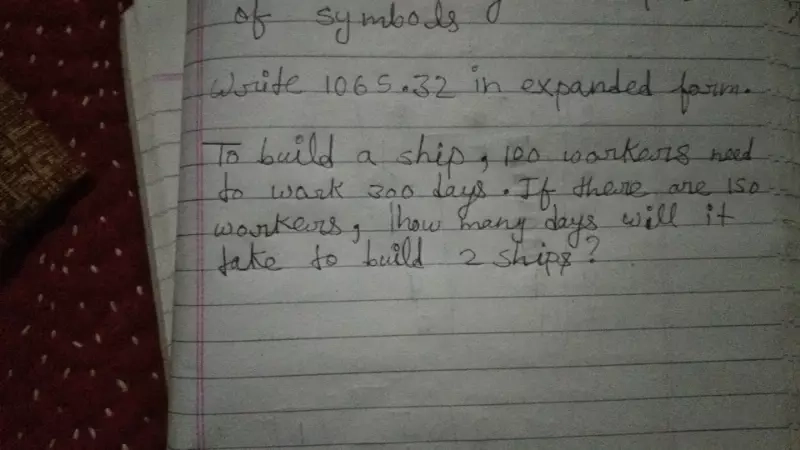 of symbols
Write 1065.32 in expanded form.
To build a ship, 100 workers need
to work 300 days. If there are 150
workers, how many days will it
take to build 2 ships?